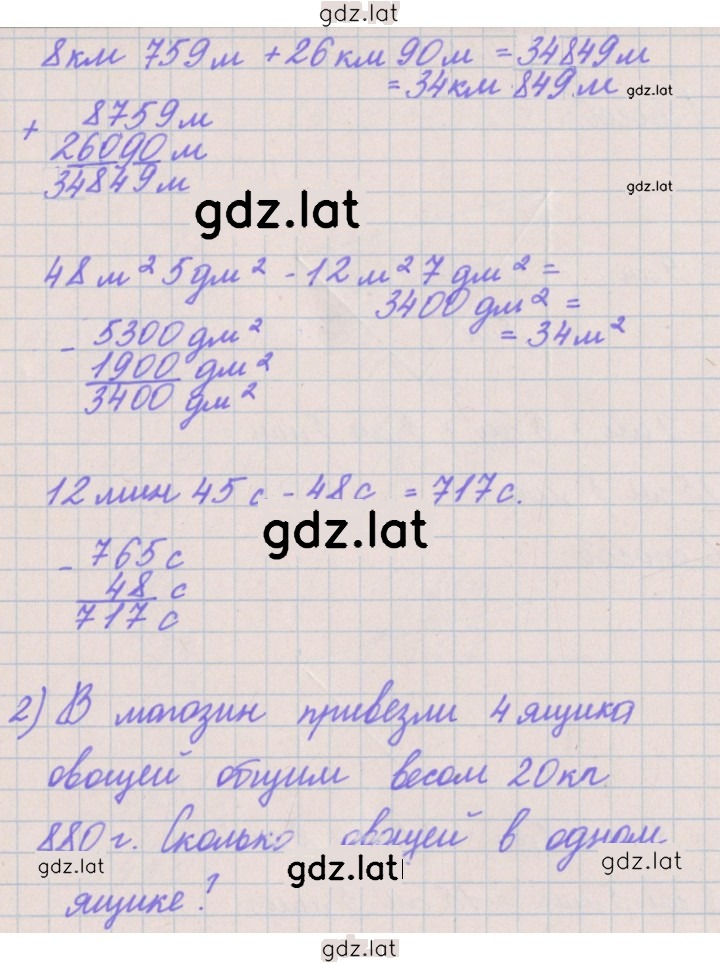 gdz.lat
8км 759м + 26км 90м = 34849м
= 34км 849м gdz.lat
+ 8759м
26090м
34849м
gdz.lat
gdz.lat
48м² 5дм² - 12м² 7дм² =
3400дм² =
= 34м²
- 5300дм²
1900дм²
3400дм²
12мин 45с - 48с = 717с.
gdz.lat
- 765с
48с
717с
2) В магазин привезли 4 ящика
овощей общим весом 20кг
880г. Сколько овощей в одном
gdz.lat gdz.lat gdz.lat
ящике?
gdz.lat